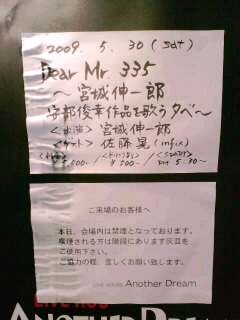 2009. 5. 30 (sat)
Dear Mr. 335
～宮城伸一郎
安部俊幸作品を歌う夕べ～
<出演> 宮城伸一郎
<ゲスト> 佐藤晃 (infix)
ご来場のお客様へ
本日、会場内は禁煙となっております。
喫煙される方は階段にあります灰皿を
ご使用下さい。
ご協力の程、宜しくお願い致します。
LIVE HOUSE Another Dream
LIVE HOUSE
ANOTHER DREAM